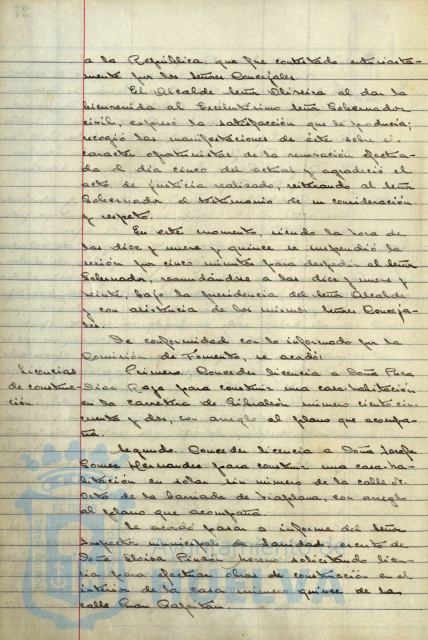 a la República, que fue contestado entusiasta-
mente por los señores Concejales.
El Alcalde señor Oliveira al dar la
bienvenida al Excelentísimo señor Gobernador
civil, expresó la satisfacción que le producia;
recogió las manifestaciones de éste sobre el
caracter oportunistas de la renovación efectua-
da el dia cinco del actual y agradeció el
acto de justicia realizado, reiterando al señor
Gobernador el testimonio de su consideración
y respeto.
En este momento, siendo la hora de
las diez y nueve y quince se suspendió la
sesión por cinco minutos para despedir al señor
Gobernador, reanudándose a las diez y nueve y
veinte, bajo la presidencia del señor Alcalde
y con asistencia de los mismos señores Conceja-
les.
De conformidad con lo informado por la
Comisión de Fomento, se acordó:
Licencias de construc-ción
Primero. Conceder licencia a Doña Pura
Diaz Raya para construir una casa habitación
en la carretera de Gibraleón número ciento cin-
cuenta y dos, con arreglo al plano que acompa-
ña.
Segundo. Conceder licencia a Doña Josefa
Gomez Hernandez para construir una casa ha-
bitación en solar sin número de la calle
de la barriada de Viaplana, con arreglo
al plano que acompaña.
Se acordó pasar a informe del señor
Inspector municipal de Sanidad escrito de
Doña Eloisa Pinzón Moreno solicitando licen-
cia para efectuar obras de construcción en el
interior de la casa número quince de la
calle Gran Capitán.
Ayuntamiento de
HUELVA